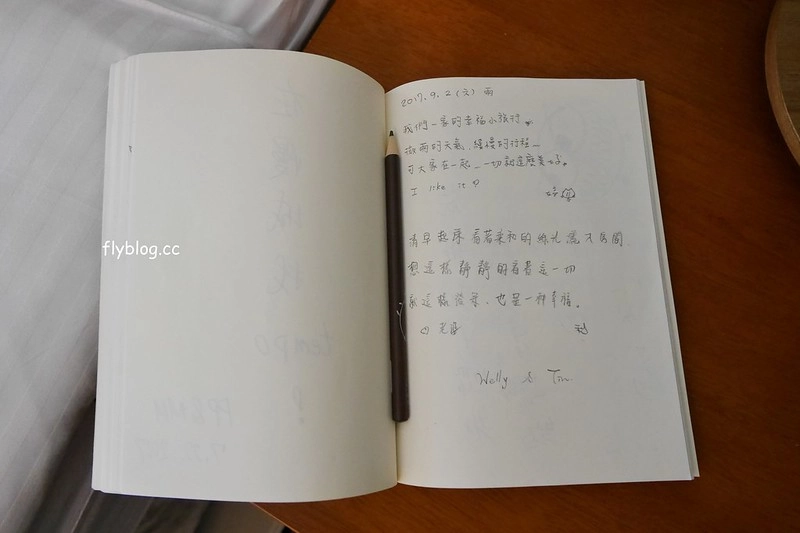 flyblog.cc
tempo
2017.9.2(六) 雨
我們一家的幸福小旅行。
微雨的天氣,緩慢的行程~
可大家在一起,一切就這麼美好。
I like it ♡
清早起床看著柔和的綠光灑入房間
想這樣靜靜的看著這一切
就這樣發呆,也是一種幸福。
Welly & Tin